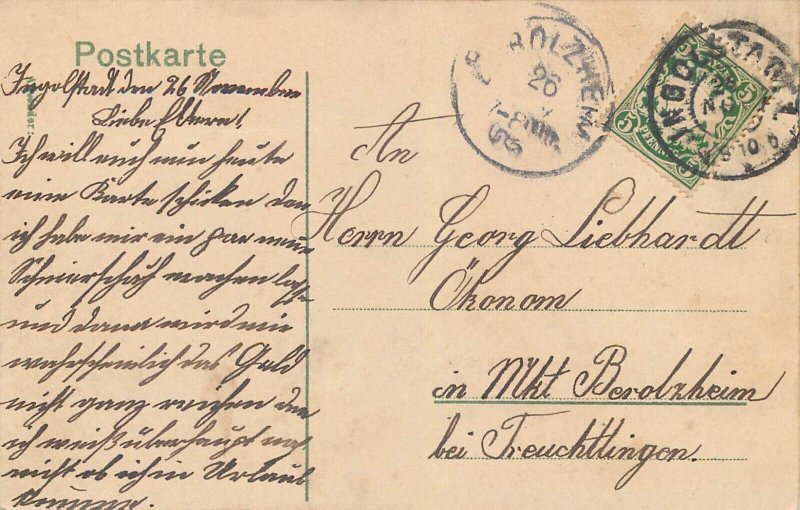 Postkarte
Ingolstadt den 26 November
Liebe Eltern!
Ich will euch nun heute
eine Karte schicken den
ich habe mir ein par neue
Schnierschäh machen lasse
und dann wird mir
wahrscheinlich das Geld
nicht ganz reichen den
ich weiß überhaupt noch
nicht ob ich in Urlaub
komme.
An
Herrn Georg Liebhardt
Ökonom
in Mkt Berolzheim
bei Treuchtlingen.
BEROLZHEIM
26
INGOLSTADT
26 NOV
5 5
BAYERN
PFENNIG